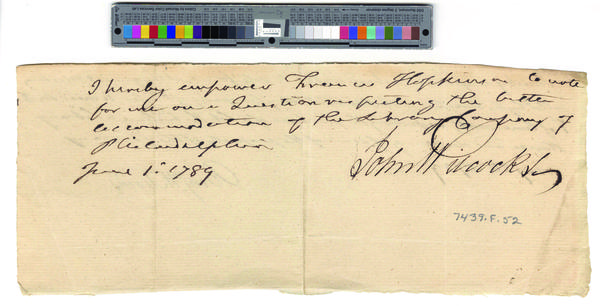 I hereby empower Francis Hopkinson to vote
for me on a Question respecting the better
accommodation of the Library Company of
Philadelphia
June 1. 1789
John Wilcocks
7439.F.52